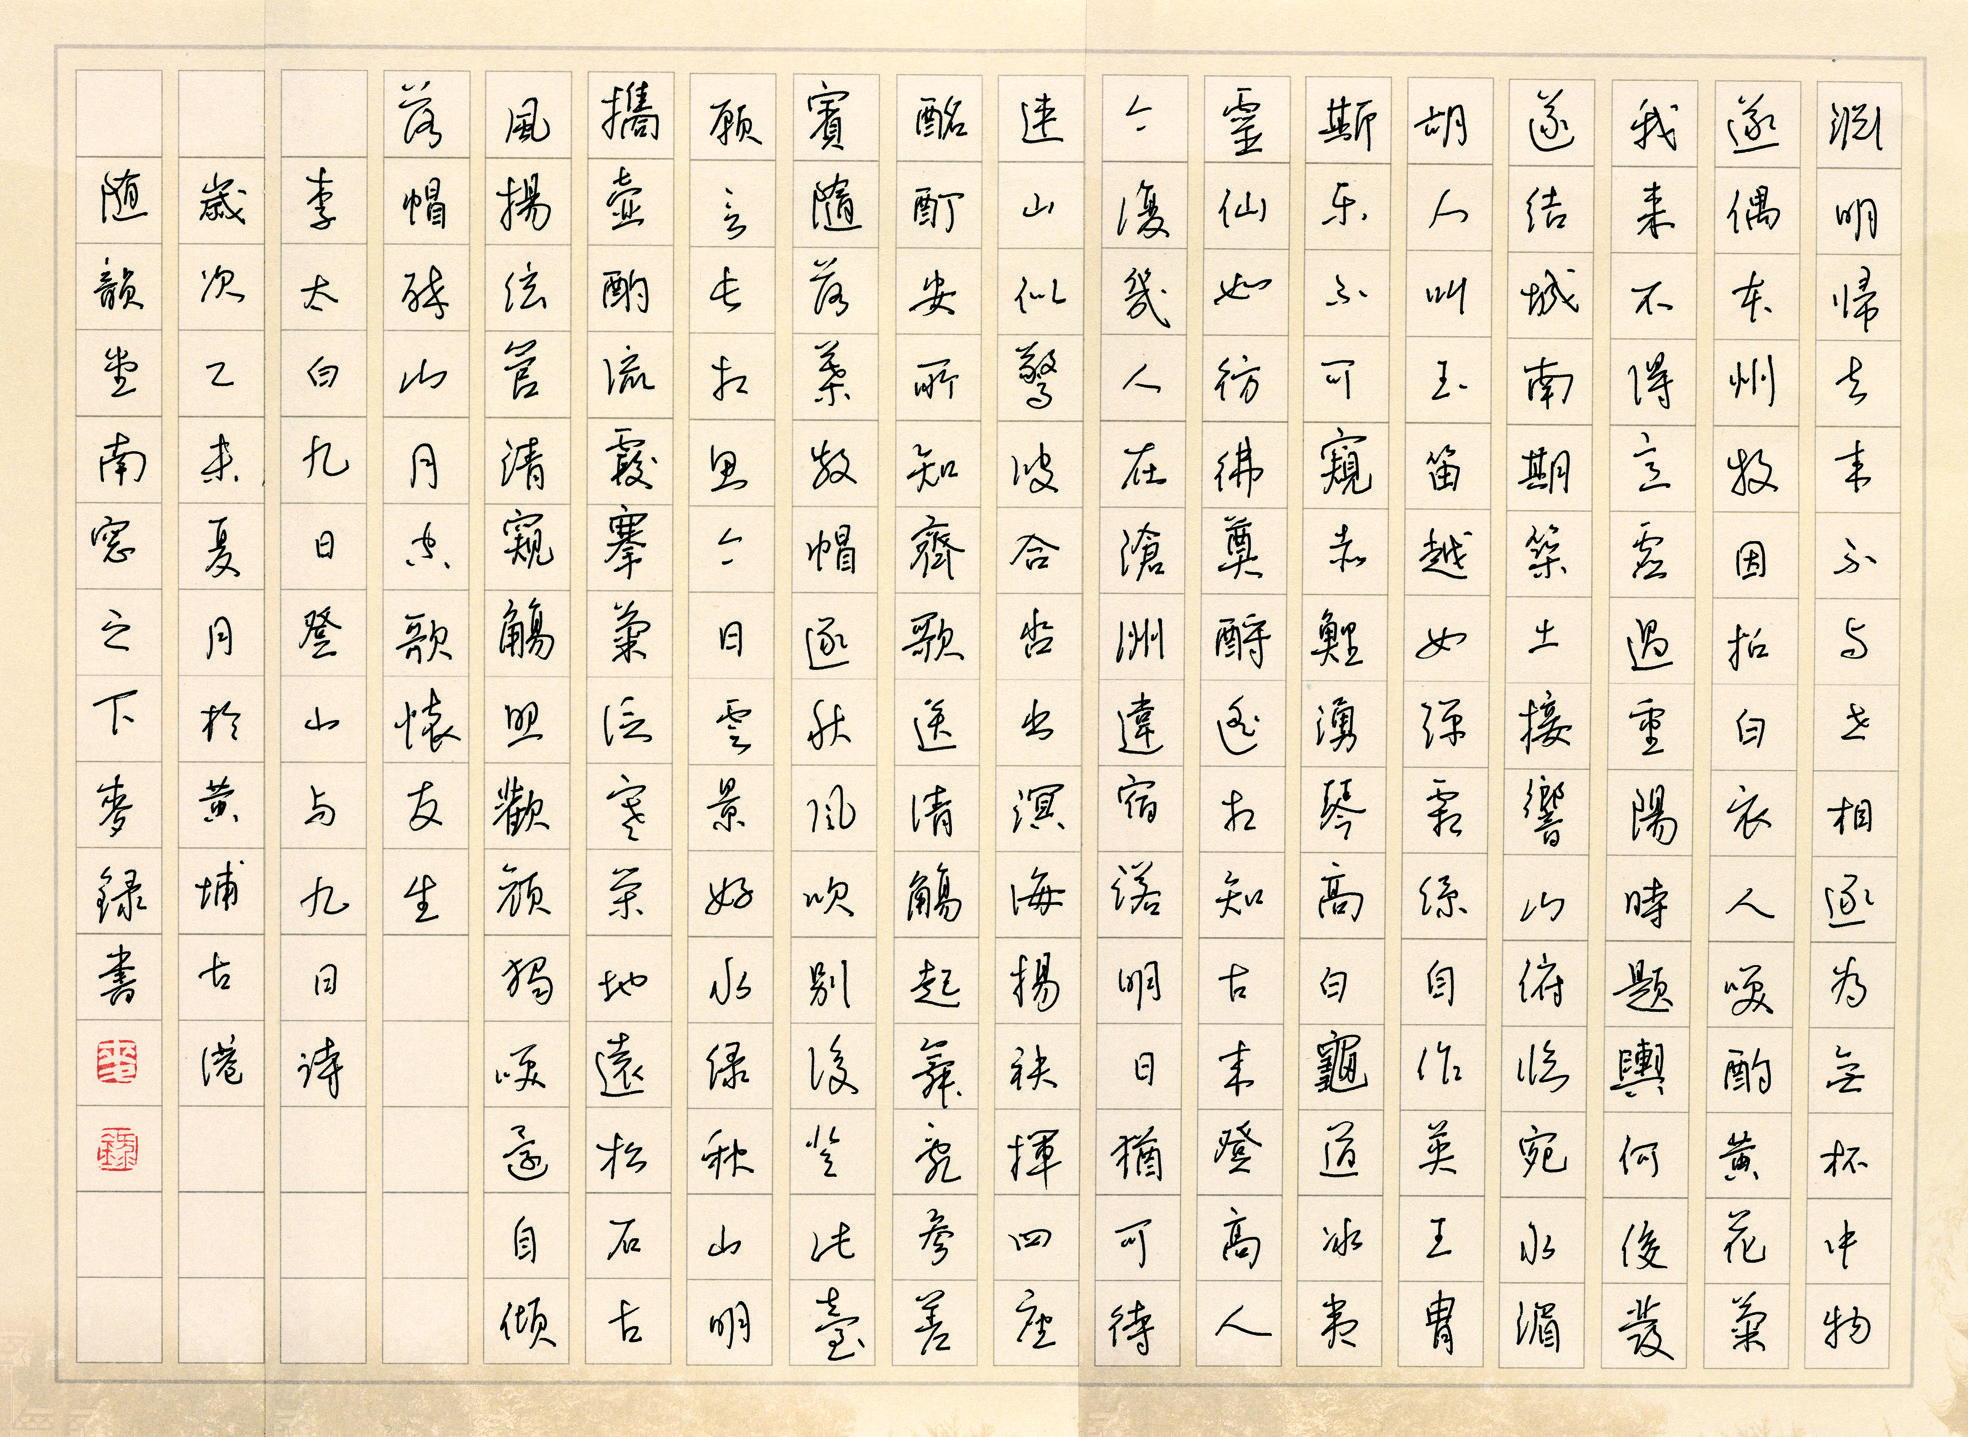 淵明歸去來不与世相逐為無杯中物
遂偶本州牧因招白衣人笑酌黃花菊
我来不得意虛過重陽時題輿何俊發
遂結城南期築土接響山俯臨宛水湄
胡人叫玉笛越女彈霜絲自作英王胄
斯乐不可窺赤鯉湧琴高白龜道冰夷
靈仙如彷彿奠酹遙相知古来登高人
今復幾人在滄洲違宿諾明日猶可待
連山似驚波合沓出溟海揚袂揮四座
酩酊安所知齊歌送清觴起舞亂參差
賓隨落葉散帽逐秋風吹別後登此臺
願言長相思今日雲景好水绿秋山明
攜壺酌流霞搴菊泛寒榮地遠松石古
風揚弦管清窺觴照歡顏獨笑還自傾
落帽醉山月空歌懷友生
李太白九日登山与九日诗
歲次乙未夏月於黃埔古港
随韻堂南窓之下麥録書